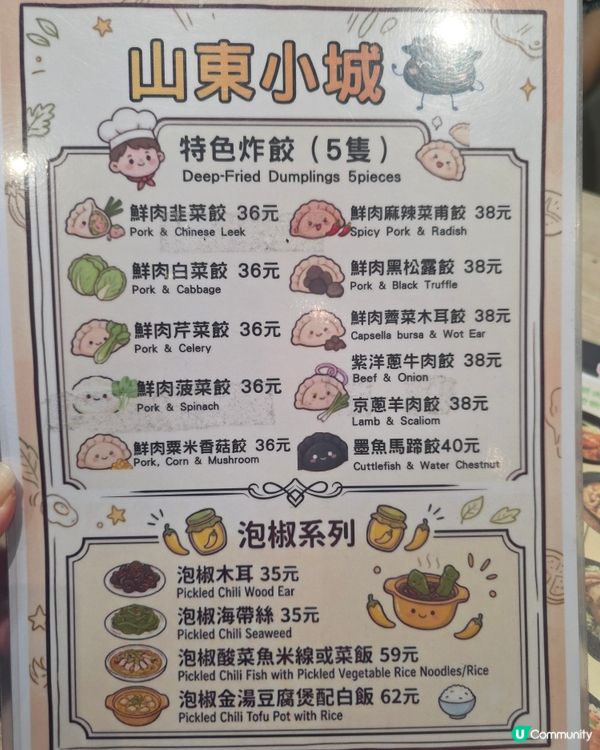 山東小城
特色炸餃（5隻）
Deep-Fried Dumplings 5pieces
鮮肉韭菜餃 36元
Pork & Chinese Leek
鮮肉白菜餃 36元
Pork & Cabbage
鮮肉芹菜餃 36元
Pork & Celery
鮮肉菠菜餃 36元
Pork & Spinach
鮮肉粟米香菇餃 36元
Pork, Corn & Mushroom
鮮肉麻辣菜甫餃 38元
Spicy Pork & Radish
鮮肉黑松露餃 38元
Pork & Black Truffle
鮮肉薺菜木耳餃 38元
Capsella bursa & Wot Ear
紫洋蔥牛肉餃 38元
Beef & Onion
京蔥羊肉餃 38元
Lamb & Scaliom
墨魚馬蹄餃40元
Cuttlefish & Water Chestnut
泡椒系列
泡椒木耳 35元
Pickled Chili Wood Ear
泡椒海帶絲 35元
Pickled Chili Seaweed
泡椒酸菜魚米線或菜飯 59元
Pickled Chili Fish with Pickled Vegetable Rice Noodles/Rice
泡椒金湯豆腐煲配白飯 62元
Pickled Chili Tofu Pot with Rice
U Community